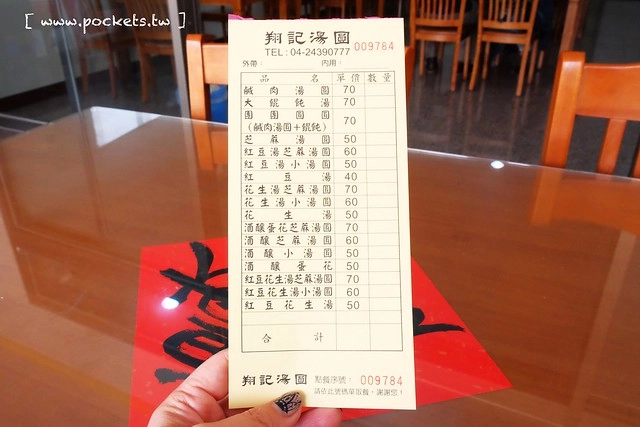 [ www.pockets.tw ]
翔記湯圓
TEL：04-24390777 009784
外帶： 內用：
品名 單價 數量
鹹肉湯圓 70
大餛飩湯 70
團團圓圓
(鹹肉湯圓＋餛飩) 70
芝蔴湯圓 50
紅豆湯芝蔴湯圓 60
紅豆湯小湯圓 50
紅豆湯 40
花生湯芝蔴湯圓 70
花生湯小湯圓 60
花生湯 50
酒釀蛋花芝蔴湯圓 70
酒釀芝蔴湯圓 60
酒釀小湯圓 50
酒釀蛋花 50
紅豆花生湯芝蔴湯圓 70
紅豆花生湯小湯圓 60
紅豆花生湯 50
合計
翔記湯圓 點餐序號： 009784
請依此號碼單取餐，謝謝您！